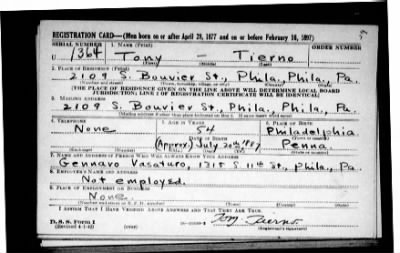 REGISTRATION CARD—(Men born on or after April 28, 1877 and on or before February 16, 1897)
SERIAL NUMBER 1. NAME (Print) ORDER NUMBER
U 1364 Tony — Tierno
(First) (Middle) (Last)
2. PLACE OF RESIDENCE (Print)
2109 S. Bouvier St., Phila, Phila, Pa.
(Number and street) (Town, township, village, or city) (County) (State)
[THE PLACE OF RESIDENCE GIVEN ON THE LINE ABOVE WILL DETERMINE LOCAL BOARD
JURISDICTION; LINE 2 OF REGISTRATION CERTIFICATE WILL BE IDENTICAL]
3. MAILING ADDRESS
2109 S. Bouvier St., Phila, Phila, Pa.
[Mailing address if other than place indicated on line 2. If same insert word same]
4. TELEPHONE 5. AGE IN YEARS 6. PLACE OF BIRTH
None 54 Philadelphia
DATE OF BIRTH (Town or county)
(Approx) July 20th 1887 Penna
(Mo.) (Day) (Yr.) (State or country)
7. NAME AND ADDRESS OF PERSON WHO WILL ALWAYS KNOW YOUR ADDRESS
Gennaro Vasaturo, 1315 S 11th St., Phila, Pa.
8. EMPLOYER'S NAME AND ADDRESS
Not employed.
9. PLACE OF EMPLOYMENT OR BUSINESS
None.
(Number and street or R. F. D. number) (Town) (County) (State)
I AFFIRM THAT I HAVE VERIFIED ABOVE ANSWERS AND THAT THEY ARE TRUE.
D. S. S. Form 1 Tony Tierno
(Revised 4-1-42) (over) (Registrant's signature)